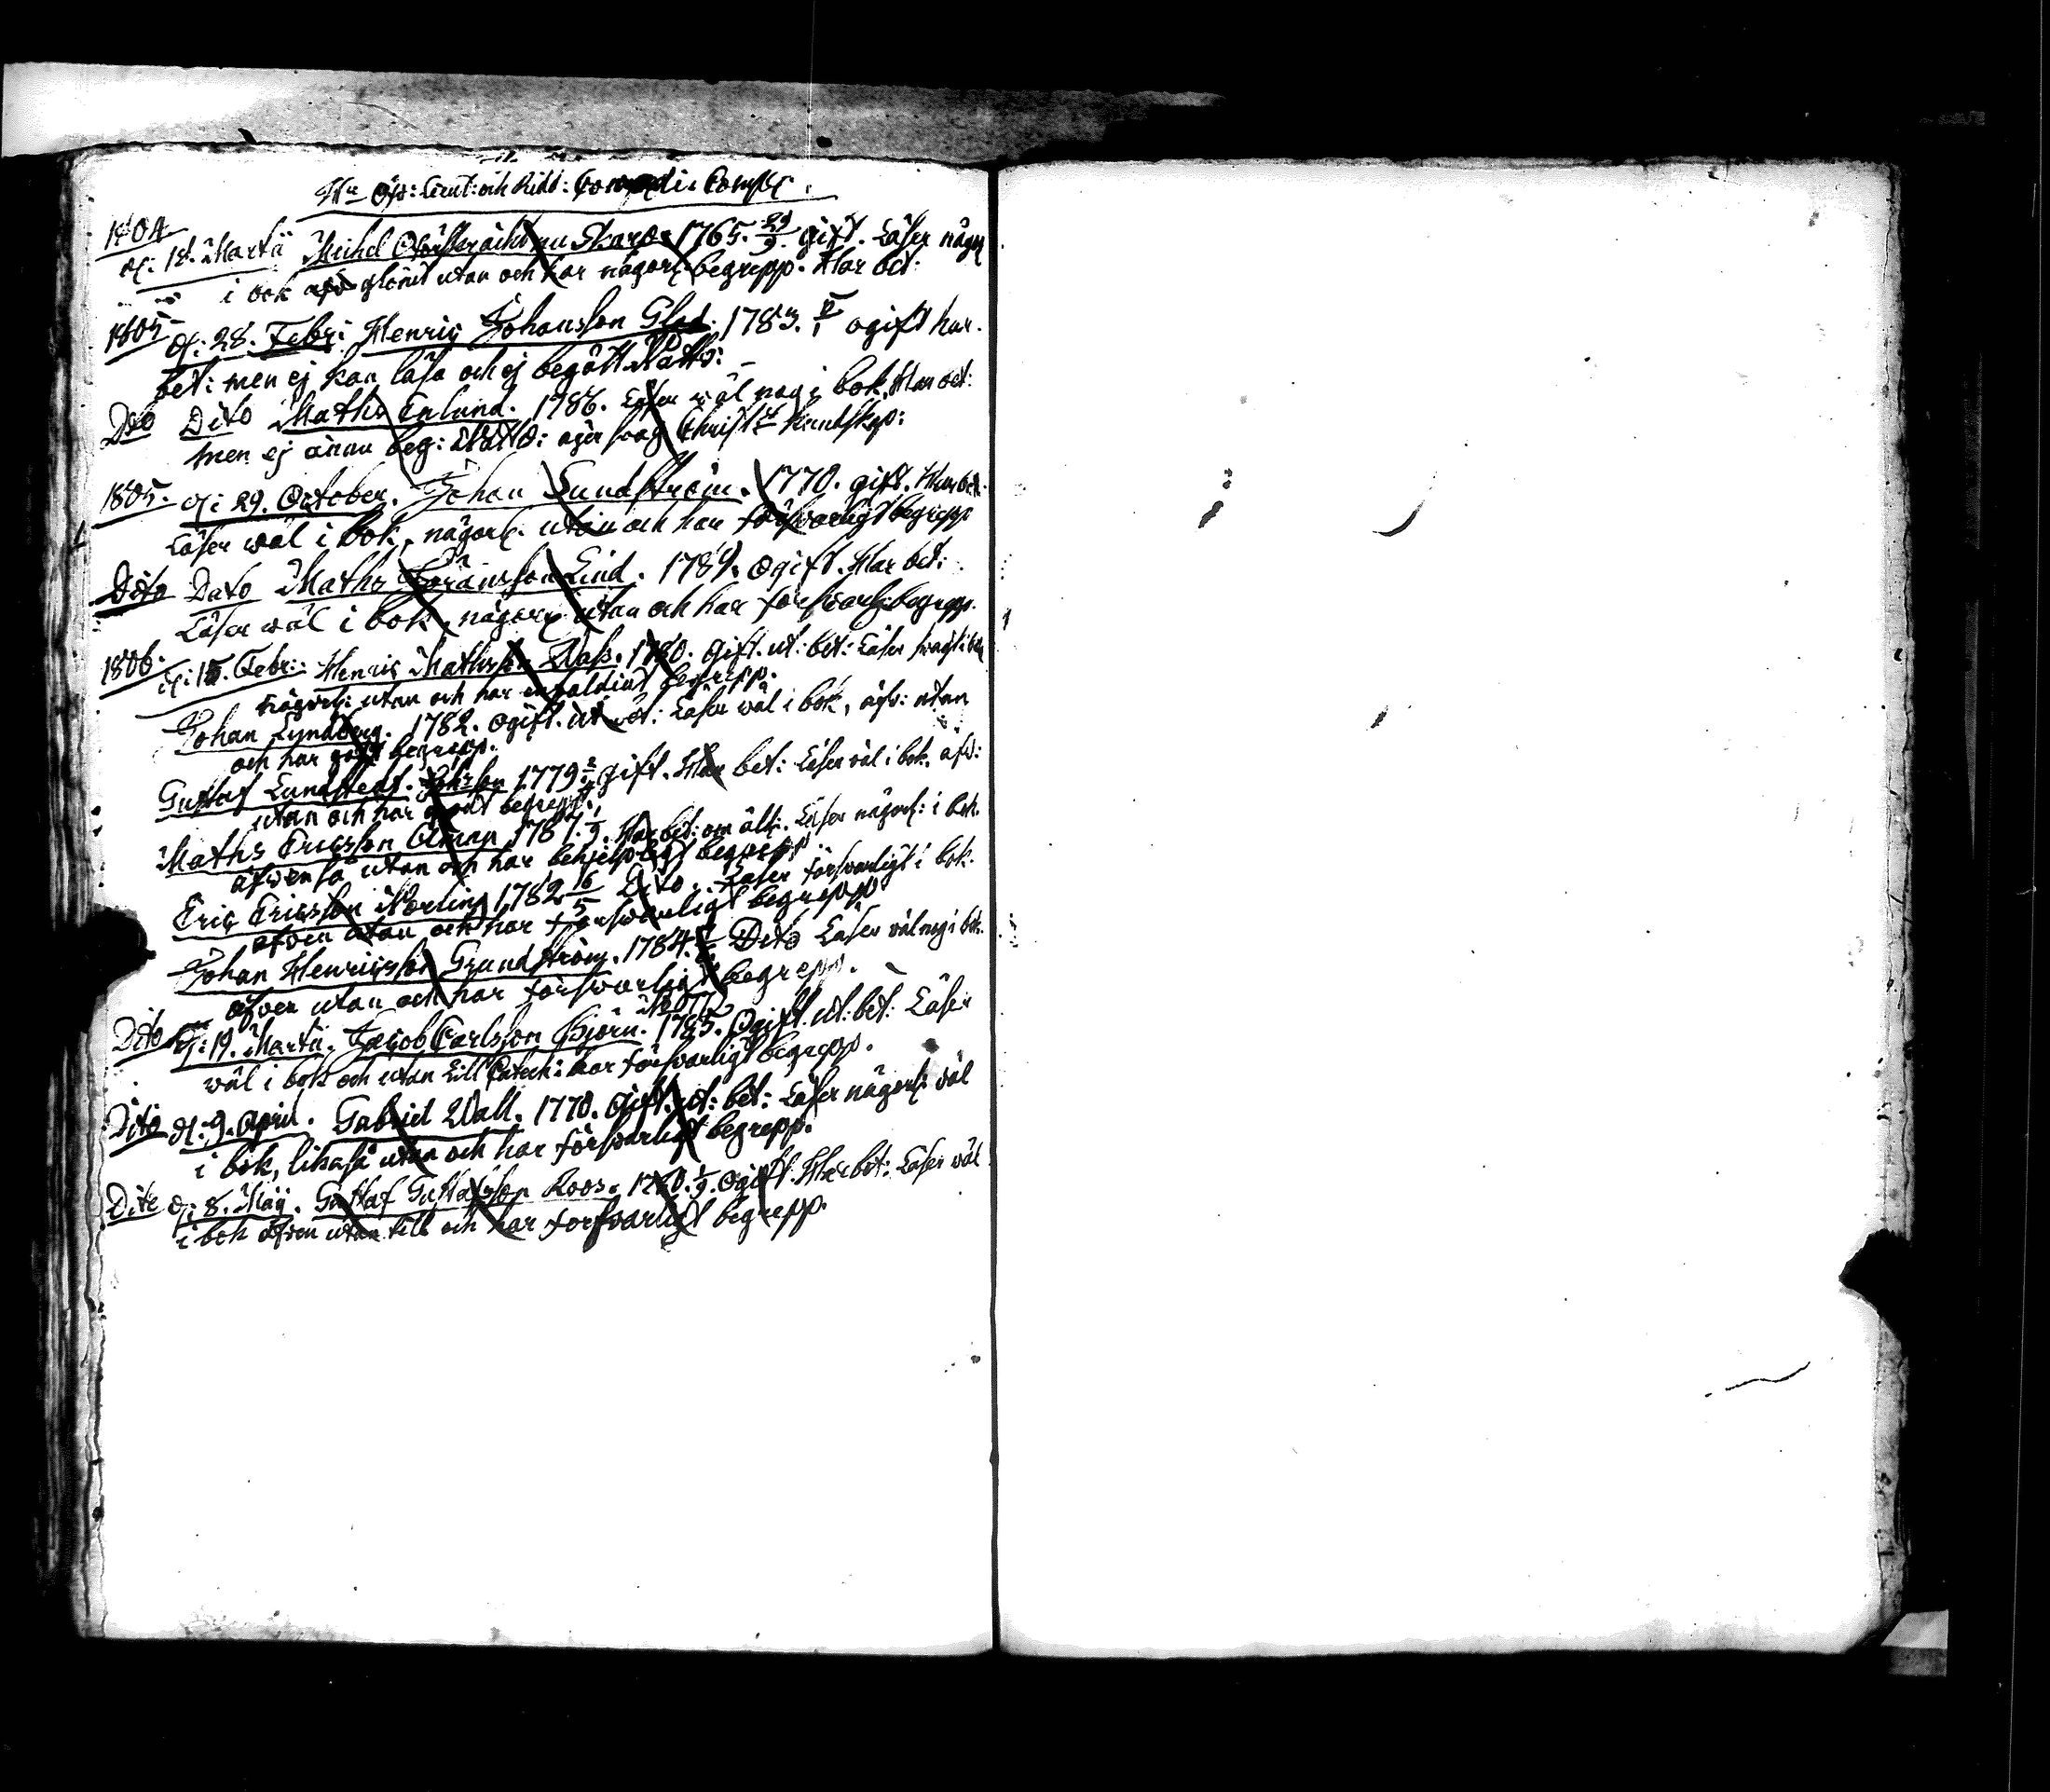 Hr Öfv: Lieut: och Ridd: Compi:
1804
d: 18. Martii Michel Skarp. 1765. 29/9. gift. Läser någorl
i bok glömt utan och har någorl: begrepp. Har bet:
1805 d: 28. Febr: Henric Johansson Glad. 1783. 1 ogift har.
bet: men ej kan läsa och ej begått Nattv:
Dito Dito Maths Enlund. 1786. Läser wäl nog i bok, Har bet:
men ej ännu beg: Nattv: äger swag Christ: kundskap:
1805. d: 29. October. Johan Sundström. 1770. gift. Har bet:
Läser wäl i bok, någorl. utan och har förswarligt begrepp
Dito Dato Maths Göransson Lind. 1784. Ogift. Har bet:
Läser wäl i bok, någorl utan och har förswarl: begrepp.
1806. d: 15. Febr: Henric Mathsson Wass. 1780. gift. ut: bet: Läser swagt i bok
någorl: utan och har enfaldigt begrepp.
Johan Lyndberg. 1782. ogift. ut bet: Läser wäl i bok, äfv: utan
och har godt begrepp.
Gustaf Lundstedt. 1779 gift. Har bet: Läser väl i bok. äfv:
utan och har godt begrepp.
Maths Ericsson Alman 1787. 1/9. Har bet: om ält: Läser någorl: i bok.
äfvenså utan och har behjelpligt begrepp
Eric Ericsson Norling 1782 16/5 Dito. Läser förswarligt i bok.
äfven utan och har förswarligt begrepp
Johan Henricsson Grundström. 1784. Dito Läser väl nog i bok.
äfven utan och har förswarligt begrepp.
Dito d: 19. Martii. Jacob Carlsson Björn. 1785. Ogift. ut: bet: Läser
wäl i bok och utan Lill Catech: har förswarligt begrepp.
Dito d: 9. April. Gabriel Wall. 1770. Gift. ut: bet: Läser någorl: väl
i bok, likaså utan och har förswarligt begrepp.
Dito d: 8. Maij. Gustaf Gustafsson Roos. 1780. 1/9. Ogift. Har bet: Läser wäl
i bok äfven utan till och har forswarligt begrepp.